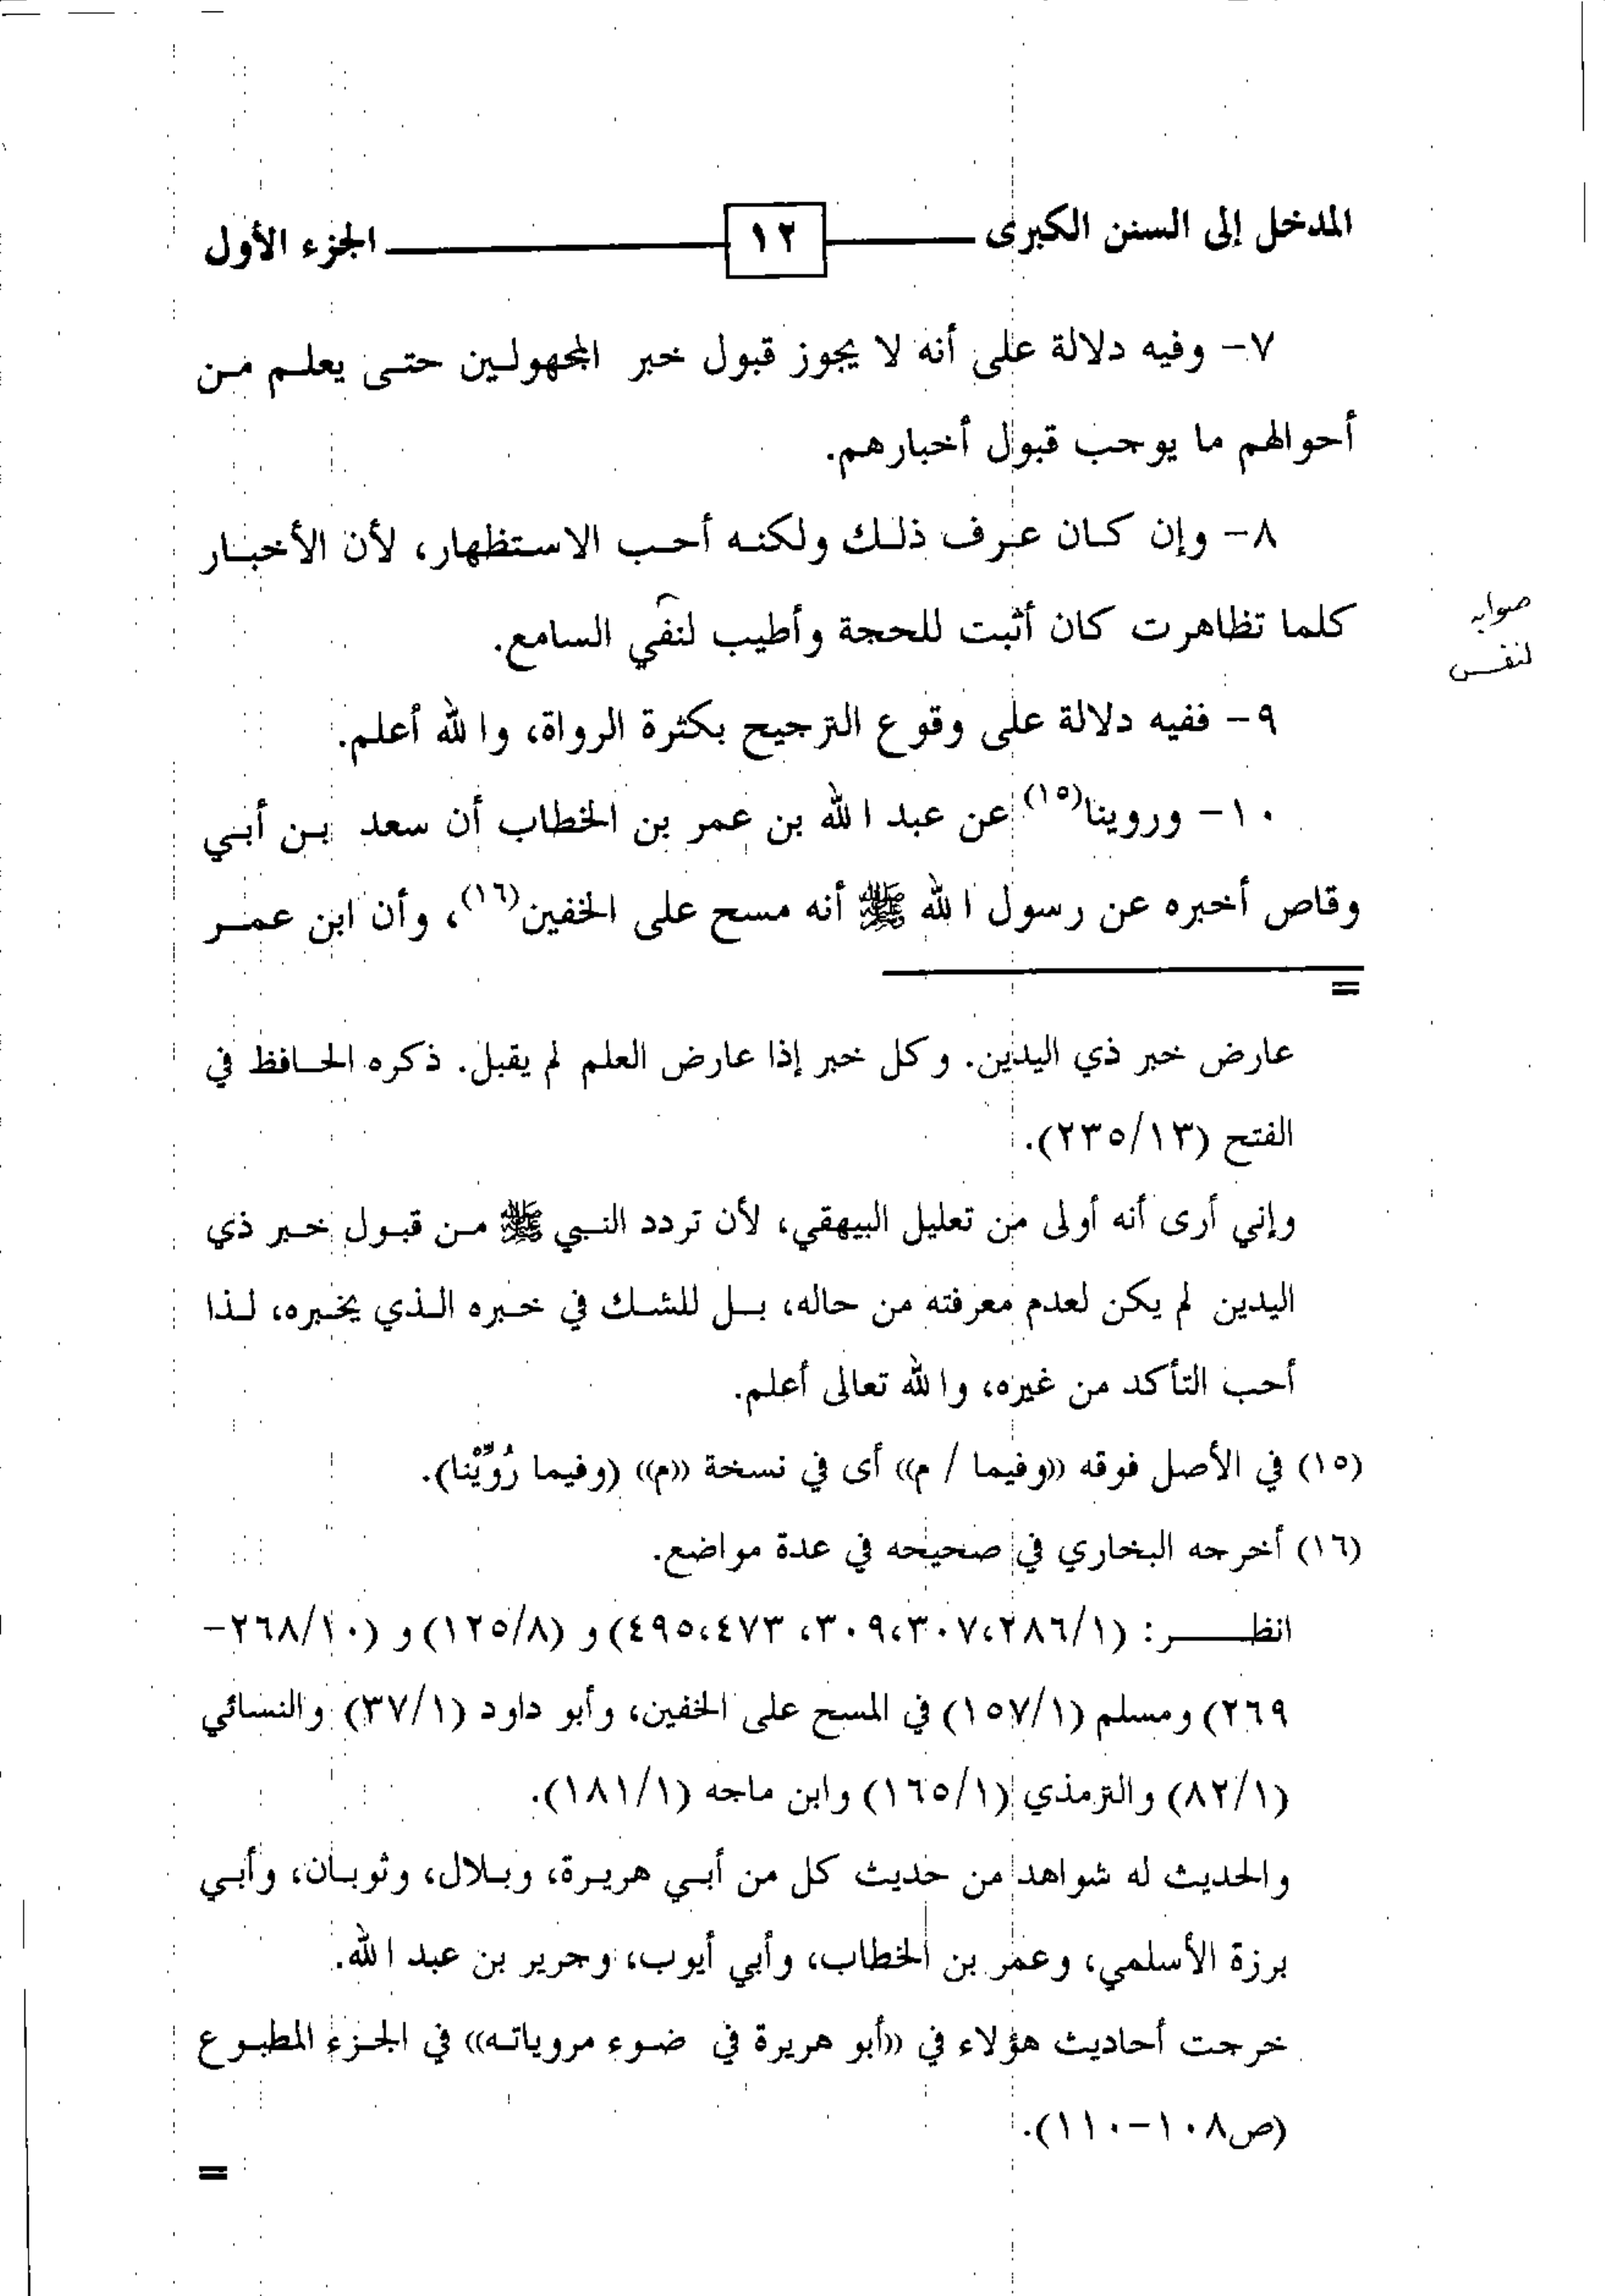 المدخل إلى السنن الكبرى ١٢ الجزء الأول
٧- وفيه دلالة على أنه لا يجوز قبول خبر المجهولين حتى يعلم من
أحوالهم ما يوجب قبول أخبارهم.
٨- وإن كان عرف ذلك ولكنه أحب الاستظهار، لأن الأخبار
كلما تظاهرت كان أثبت للحجة وأطيب لنفي السامع.
صوابه
لنفس
٩- ففيه دلالة على وقوع الترجيح بكثرة الرواة، والله أعلم.
١٠- وروينا(١٥) عن عبد الله بن عمر بن الخطاب أن سعد بن أبي
وقاص أخبره عن رسول الله ﷺ أنه مسح على الخفين(١٦)، وأن ابن عمر
=
عارض خبر ذي اليدين. وكل خبر إذا عارض العلم لم يقبل. ذكره الحافظ في
الفتح (٢٣٥/١٣).
وإني أرى أنه أولى من تعليل البيهقي، لأن تردد النبي ﷺ من قبول خبر ذي
اليدين لم يكن لعدم معرفته من حاله، بل للشك في خبره الذي يخبره، لذا
أحب التأكد من غيره، والله تعالى أعلم.
(١٥) في الأصل فوقه «وفيما / م» أى في نسخة «م» (وفيما رُوِّيْنا).
(١٦) أخرجه البخاري في صحيحه في عدة مواضع.
انظر: (٢٨٦/١،٣٠٧،٣٠٩، ٤٧٣،٤٩٥) و (١٢٥/٨) و (٢٦٨/١٠-
٢٦٩) ومسلم (١٥٧/١) في المسح على الخفين، وأبو داود (٣٧/١) والنسائي
(٨٢/١) والترمذي (١٦٥/١) وابن ماجه (١٨١/١).
والحديث له شواهد من حديث كل من أبي هريرة، وبلال، وثوبان، وأبي
برزة الأسلمي، وعمر بن الخطاب، وأبي أيوب، وجرير بن عبد الله.
خرجت أحاديث هؤلاء في «أبو هريرة في ضوء مروياته» في الجزء المطبوع
(ص١٠٨-١١٠).
=